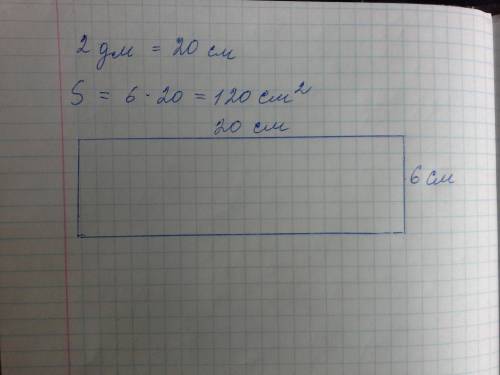 2 дм = 20 см
S = 6 · 20 = 120 см²
20 см
6 см